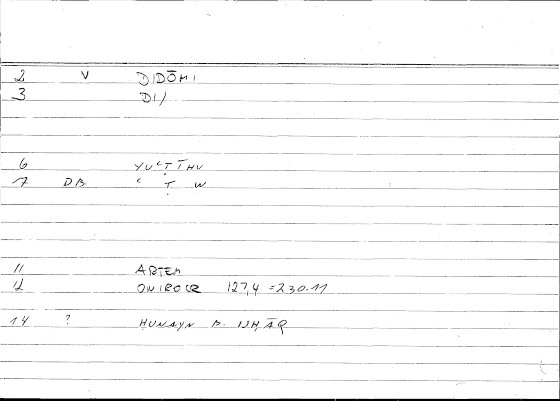 2 V DIDŌMI
3 DI/
6 YUʿṬĪHU
7 DB ʿ Ṭ W
11 ARTEM
12 ONIROCR 127,4 = 230.11
14 ? HUNAYN B. ISHĀQ